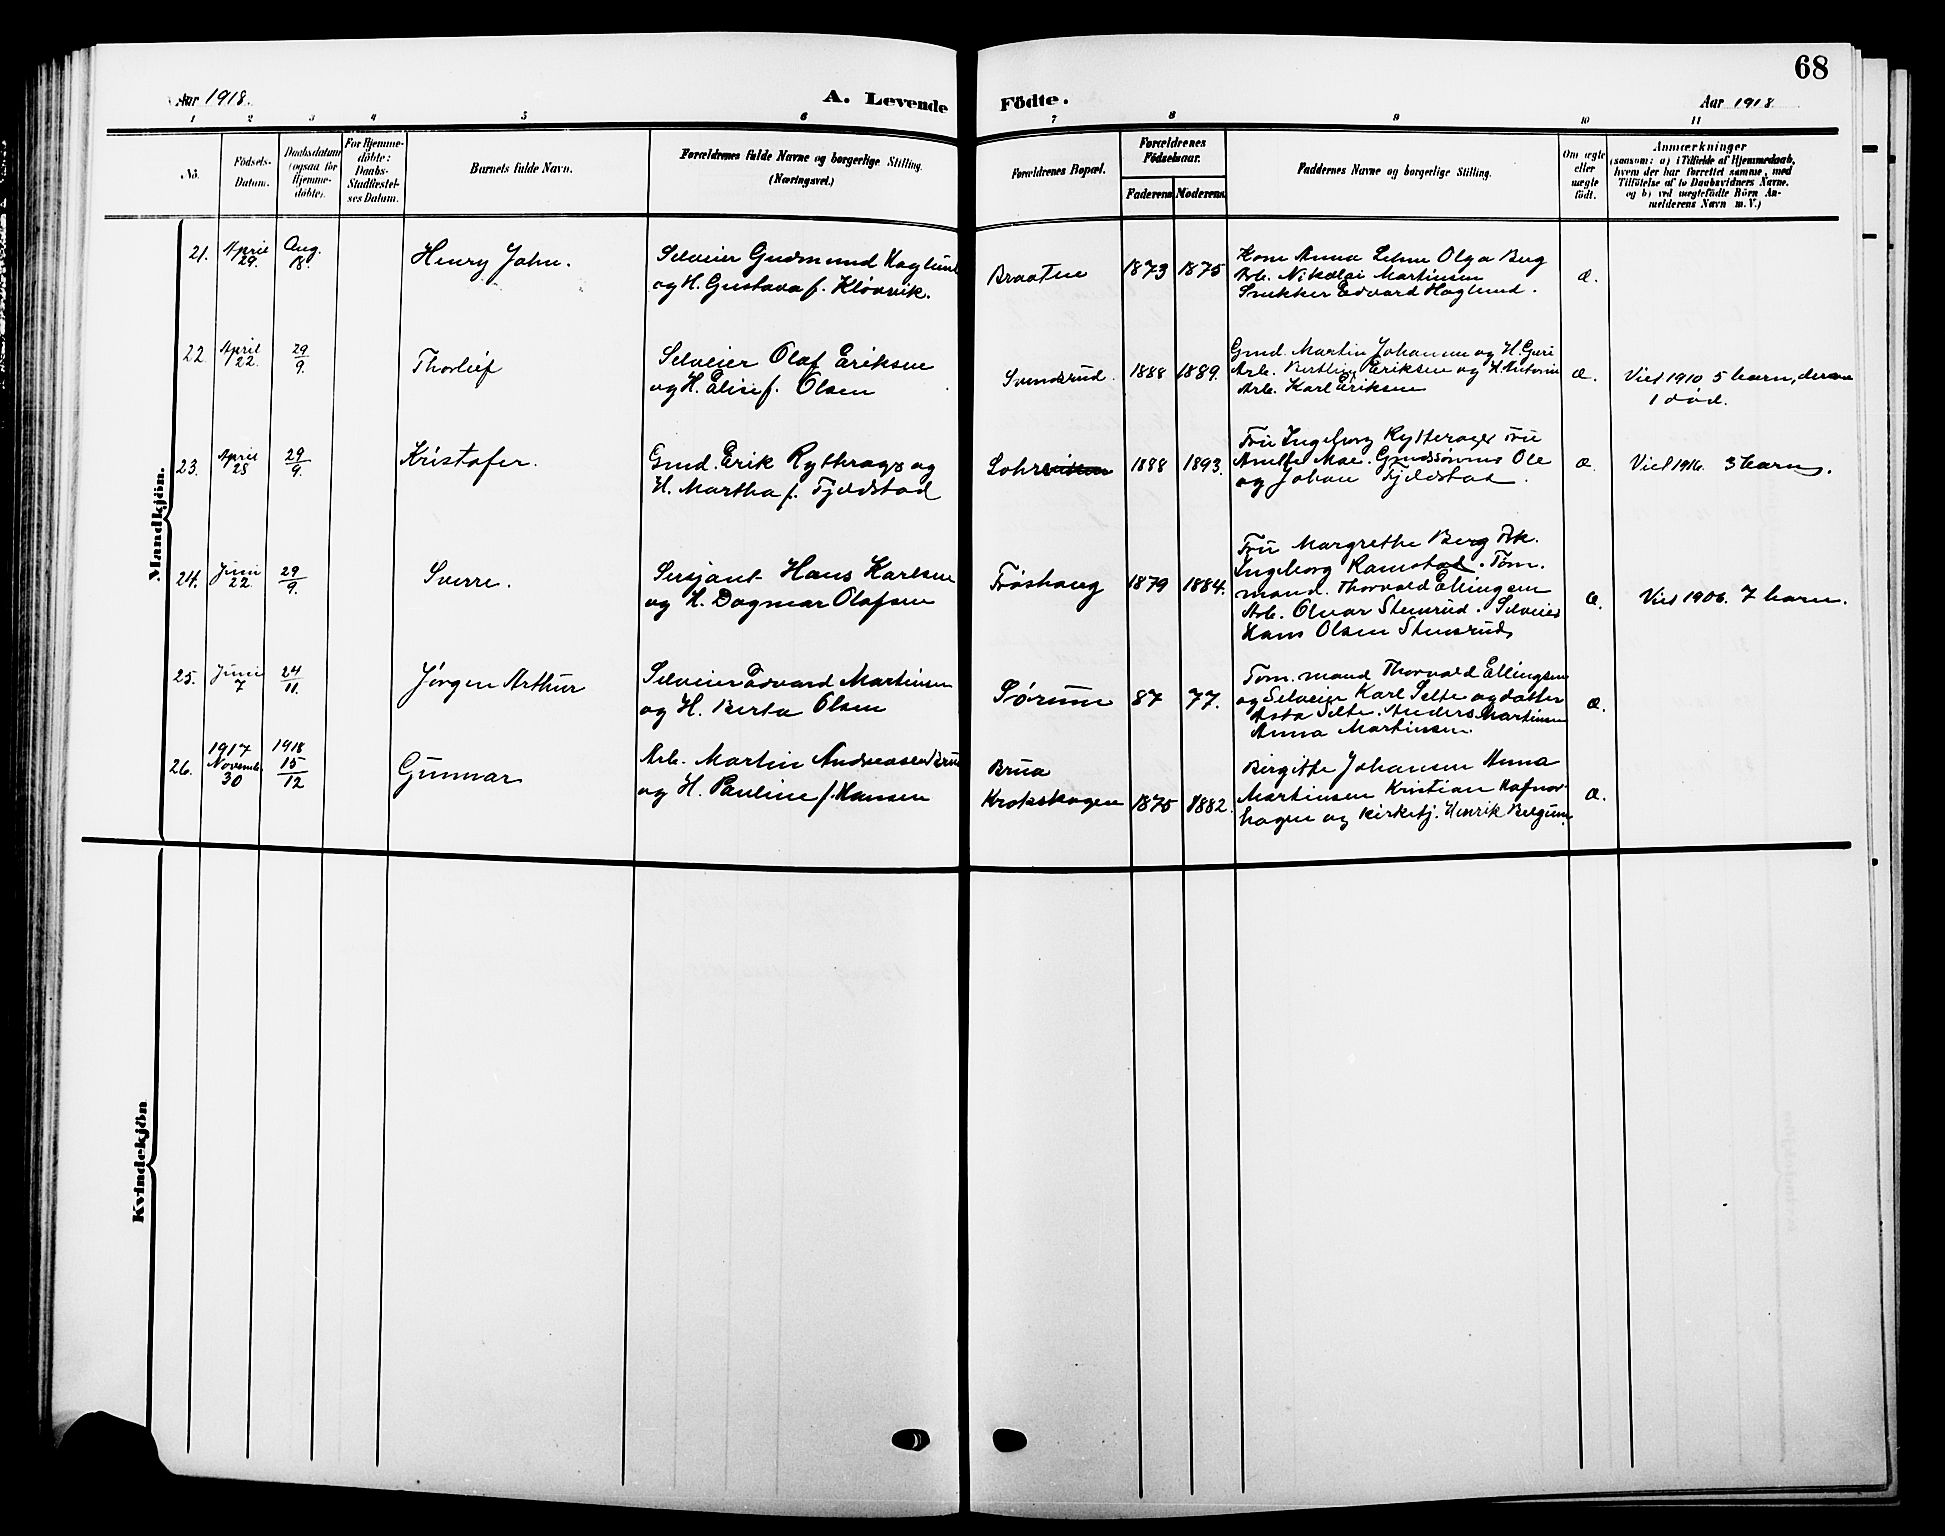 68
Aar 1918.
A. Levende Födte.
Aar 1918
1 2 3 4 5 6 7 8 9 10 11
No.
Födsels-
Datum.
Daabsdatum
(ogsaa for
Hjemme-
döbte).
For Hjemme-
döbte:
Daabs-
Stadfæstel-
ses Datum.
Barnets fulde Navn.
Forældrenes fulde Navne og borgerlige Stilling.
(Næringsvei.)
Forældrenes Bopæl.
Forældrenes
Födselsaar.
Faderens Moderens
Faddernes Navne og borgerlige Stilling.
Om ægte
eller
uægte
födt.
Anmærkninger
(saasom: a) i Tilfælde af Hjemmedaab,
hvem der har forrettet samme, med
Tilföielse af to Daabsvidners Navne.
og b) ved uægtefödte Börn An-
melderens Navn m. V.)
Mandkjön.
21. April 29. Aug. 18. Henry John.
Selveier Gudmund Haglund
og H. Gustava f. Klövvik.
Braaten 1873 1875
Kone Anna Lehne Olga Berg
Arb. Nikolai Martinsen
Snekker Edvard Haglund.
æ.
22. April 22. 29/9. Thorleif
Selveier Olaf Eriksen
og H. Elise f. Olsen
Svendsrud. 1888 1889.
Gmd. Martin Johansen og H. Guri
Arb. Eriksen og H.
Arb. Karl Eriksen
æ.
Viet 1910 5 barn, derav
1 död.
23. April 28 29/9. Kristofer.
Gmd. Erik Rytterager og
H. Martha f. Fjeldstad
1888 1893.
Fru Ingeborg Rytterager Fru
Anethe Moe. Gmdssønnene Ole
og Johan Fjeldstad.
æ.
Viet 1916. 3 barn.
24. Juni 22 29/9. Sverre.
Sersjant Hans Karlsen
og H. Dagmar Olafsen
Frøshaug 1879 1884.
Fru Margrethe Berg Pk.
Ingeborg Ramstad. Tøm.
mand. Thorvald Ellingsen
Arb. Stensrud. Selveier
Hans Olsen Stensrud
æ.
Viet 1906. 7 barn.
25. Juni 7 24/11. Jørgen Arthur
Selveier Edvard Martinsen
og H. Berta Olsen
Sørum 87 77.
Tøm. mand Thorvald Ellingsen
og Selveier Karl Selte og datter
Asta Selte. Anders Martinsen
Anna Martinsen.
æ.
26. 1917 Novemb. 30 1918 15/12 Gunnar
Arb. Martin Andreasen Brua
og H. Pauline f. Hansen
Brua
Krokskogen 1875 1882.
Birgitte Johansen Anna
Martinsen Kristian Hafnor-
hagen og Kirketj. Henrik Bergum.
æ.
Kvindekjön